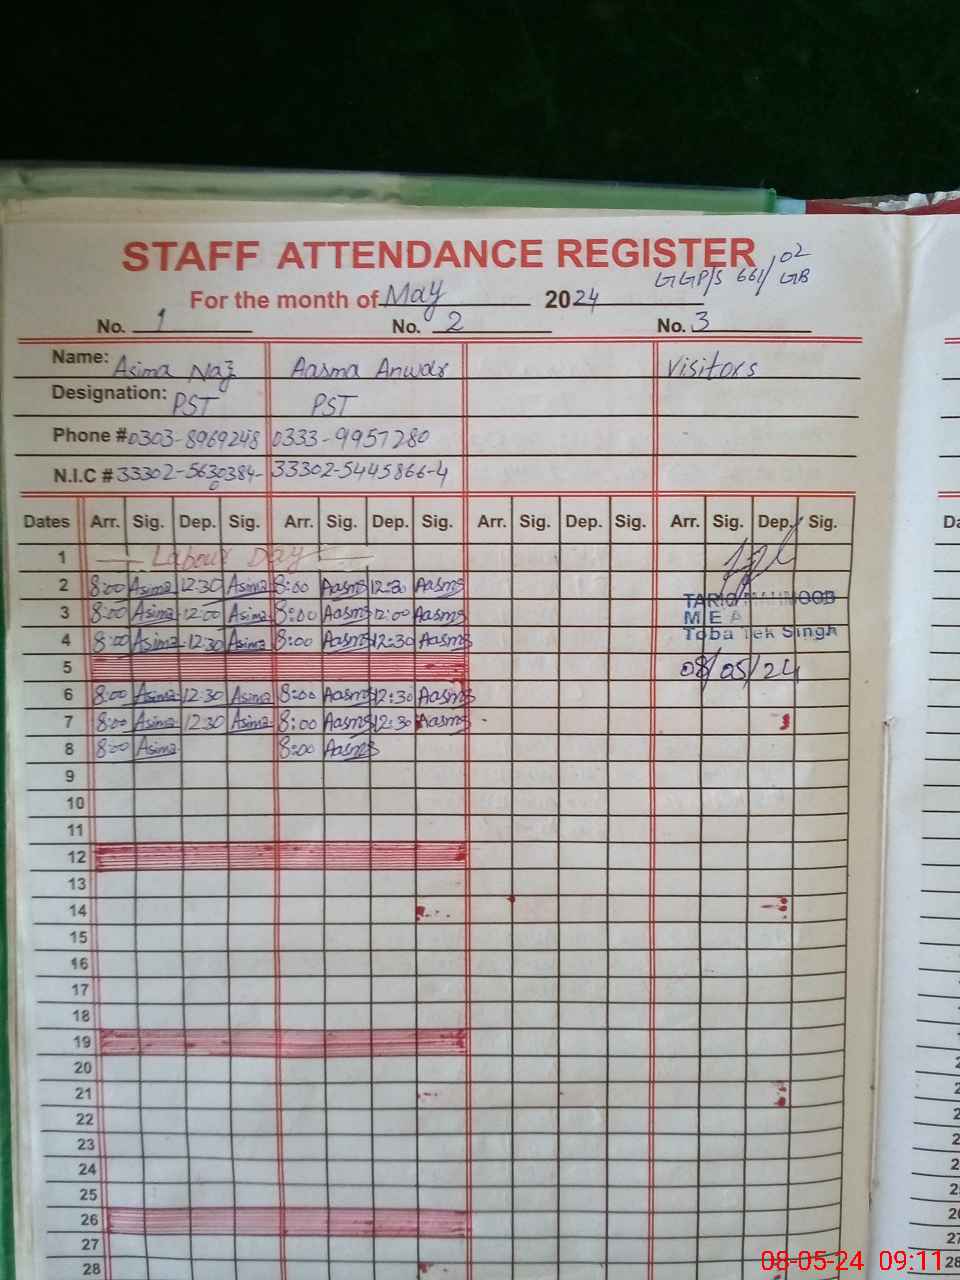 STAFF ATTENDANCE REGISTER
GGP/S 661/02 GB
For the month of May 2024
No. 1 No. 2 No. 3
Name: Asima Naz Aasma Anwar Visitors
Designation: PST PST
Phone # 0303-8969248 0333-9957280
N.I.C # 33302-5630384-0 33302-5445866-4
Dates Arr. Sig. Dep. Sig. Arr. Sig. Dep. Sig. Arr. Sig. Dep. Sig. Arr. Sig. Dep. Sig.
1 Labour Day
2 8:00 Asima 12:30 Asima 8:00 Aasma 12:30 Aasma
TARIQ MAHMOOB
3 8:00 Asima 12:00 Asima 8:00 Aasma 12:00 Aasma
M E A
4 8:00 Asima 12:30 Asima 8:00 Aasma 12:30 Aasma
Toba Tek Singh
5
08/05/24
6 8:00 Asima 12:30 Asima 8:00 Aasma 12:30 Aasma
7 8:00 Asima 12:30 Asima 8:00 Aasma 12:30 Aasma
8 8:00 Asima 8:00 Aasma
9
10
11
12
13
14
15
16
17
18
19
20
21
22
23
24
25
26
27
28
08-05-24 09:11